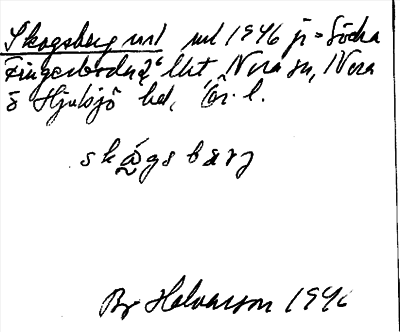 Skogsberg nrl utl 1946 jr = Södra
Fingerboda 2⁶ lht, Nora sn, Nora
o Hjulsjö hd, Ör. l.
skågsbærj
Br Halvarson 1946